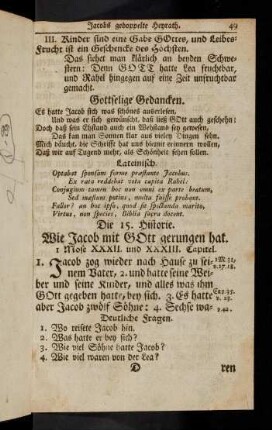 Jacobs gedoppelte Heyrath. 49
III. Kinder sind eine Gabe GOttes, und Leibes-
Frucht ist ein Geschencke des Höchsten.
Das siehet man klärlich an beyden Schwe-
stern: Denn GOTT hatte Lea fruchtbar,
und Rahel hingegen auf eine Zeit unfruchtbar
gemacht.
Gottselige Gedancken.
Es hatte Jacob sich was schönes auserlesen,
Und was er sich gewünscht, das ließ GOtt auch geschehn:
Doch daß sein Ehstand auch ein Wehstand sey gewesen,
Das kan man Sonnen klar aus vielen Dingen sehn.
Mich däucht, die Schrifft hat uns hiermit erinnern wollen,
Daß wir auf Tugend mehr, als Schönheit sehen sollen.
Lateinisch.
Optabat sponsam forma præstante Jacobus.
En rata reddebat vota cupita Rahel.
Conjugium tamen hoc non omni ex parte beatum,
Sed mæstum potius, multa fuisse probant.
Fallor? an hoc ipso, quod sit spectanda marito,
Virtus, non species, Biblia sacra docent.
Die 15. Historie.
Wie Jacob mit GOtt gerungen hat.
1 Mose XXXII. und XXXIII. Capitel.
1. Jacob zog wieder nach Hause zu sei-
nem Vater, 2. und hatte seine Wei-
ber und seine Kinder, und alles was ihm
GOtt gegeben hatte, bey sich. 3. Es hatte
aber Jacob zwölf Söhne: 4. Sechse wa-
Deutliche Fragen.
1. Wo reisete Jacob hin.
2. Was hatte er bey sich?
3. Wie viel Söhne hatte Jacob?
4. Wie viel waren von der Lea?
D ren